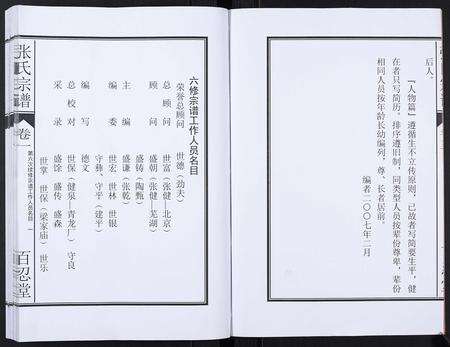 后人。
「人物篇」遵循生不立传原则，已故者写简要生平，健
在者只写简历，排序遵旧制，同类型人员按辈份尊卑，辈份
相同人员按年龄长幼编列，尊、长者居前。
编者二〇〇七年二月
张氏宗谱
卷一
第六次续修宗谱工作人员名目
一
百忍堂
六修宗谱工作人员名目
荣誉总顾问 世德（劲夫）
总顾问 世富（张健—北京）
顾问 盛朝（张健—芜湖）
盛铸（陶甄）
主编 盛谦（张乾）
编委 世宏 世林 世银
守彝、守平（建平）
编写 德文
总校对 世保（健泉—青龙厂） 守良
采录 盛馀 盛传 盛森
世掌 世保（梁家庙） 世乐